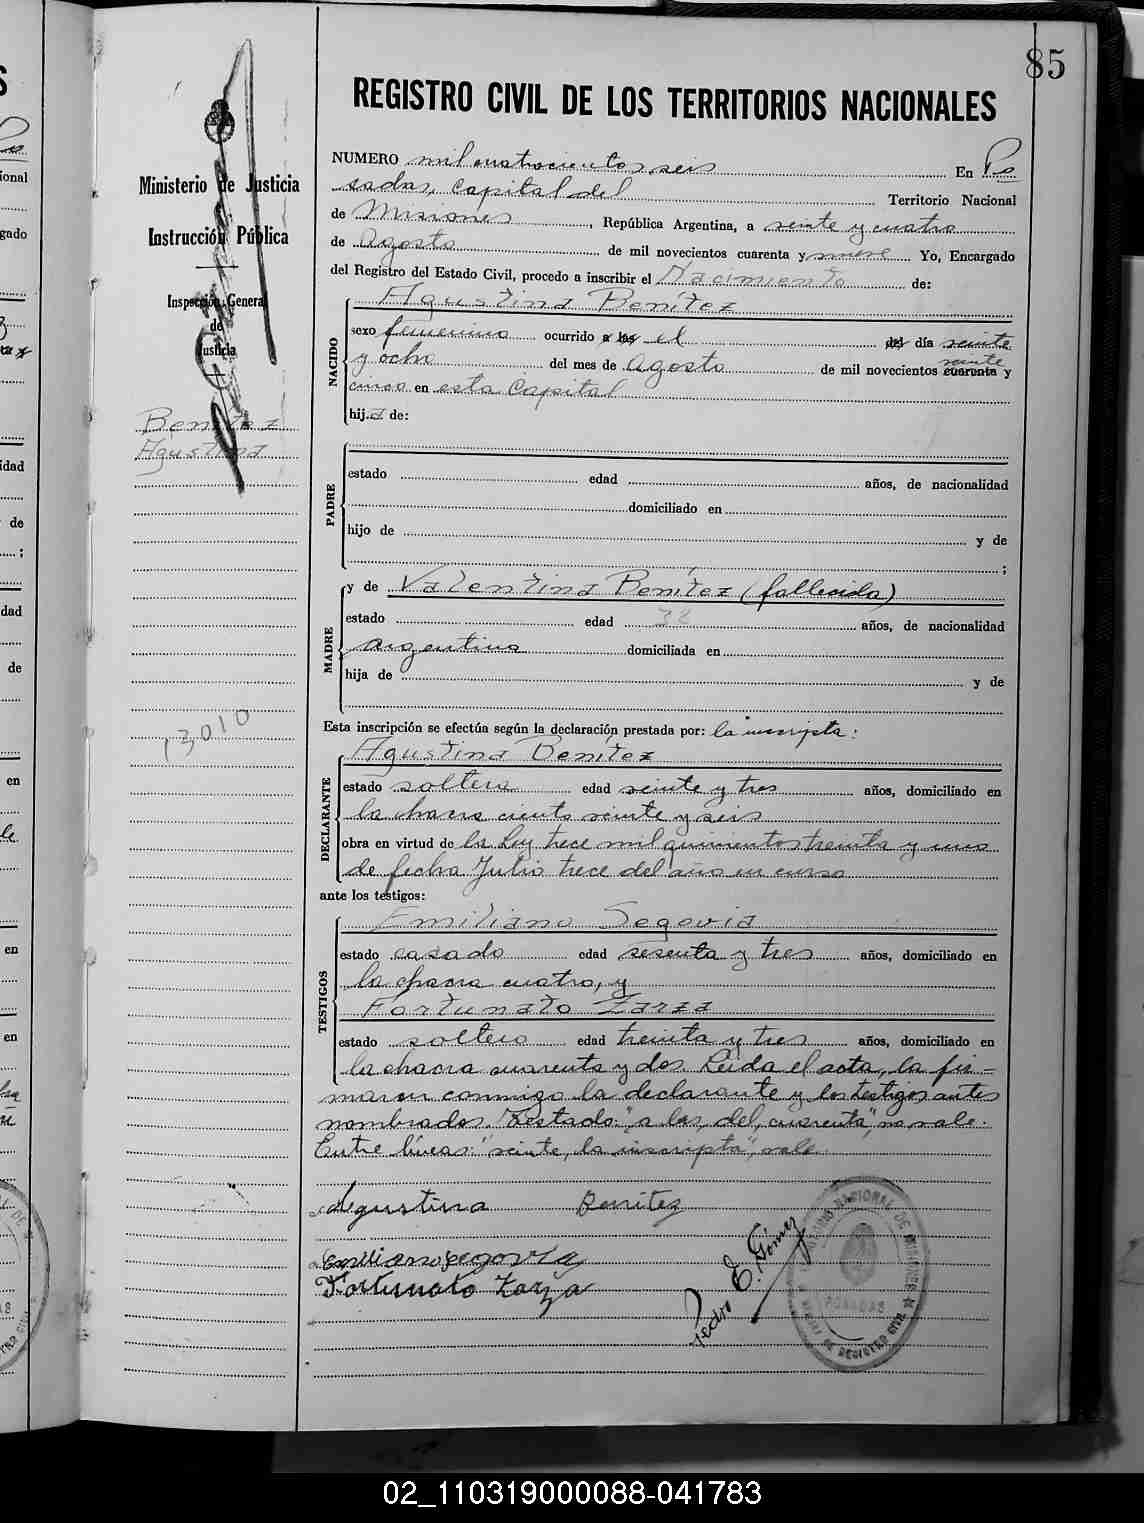 85
REGISTRO CIVIL DE LOS TERRITORIOS NACIONALES
Ministerio de Justicia
Instrucción Pública
Inspección General
de
Justicia
Benítez
Agustina
13010
NUMERO mil cuatrocientos seis En Po
sadas, capital del Territorio Nacional
de Misiones, República Argentina, a veinte y cuatro
de Agosto de mil novecientos cuarenta y nueve Yo, Encargado
del Registro del Estado Civil, procedo a inscribir el Nacimiento de:
Agustina Benítez
NACIDO
sexo femenino ocurrido a las el del día veinte
y ocho del mes de Agosto de mil novecientos cuarenta veinte y
cinco en esta Capital
hija de:
PADRE
estado edad años, de nacionalidad
domiciliado en
hijo de y de
;
MADRE
y de Valentina Benítez (fallecida)
estado edad 38 años, de nacionalidad
argentina domiciliada en
hija de y de
Esta inscripción se efectúa según la declaración prestada por: la inscripta:
DECLARANTE
Agustina Benítez
estado soltera edad veinte y tres años, domiciliado en
la chacra ciento veinte y seis
obra en virtud de la Ley trece mil quinientos treinta y uno
de fecha Julio trece del año en curso
ante los testigos:
TESTIGOS
Emiliano Segovia
estado casado edad sesenta y tres años, domiciliado en
la chacra cuatro, y
Fortunato Zarza
estado soltero edad treinta y tres años, domiciliado en
la chacra cuarenta y dos. Leída el acta, la fir-
maron conmigo la declarante y los testigos antes
nombrados. Testado: "a las, del, cuarenta", no vale.
Entre líneas: "veinte, la inscripta", vale.
Agustina Benitez
Emiliano Segovia
Fortunato Zarza
Pedro E. Gómez
POSADAS
02_110319000088-041783